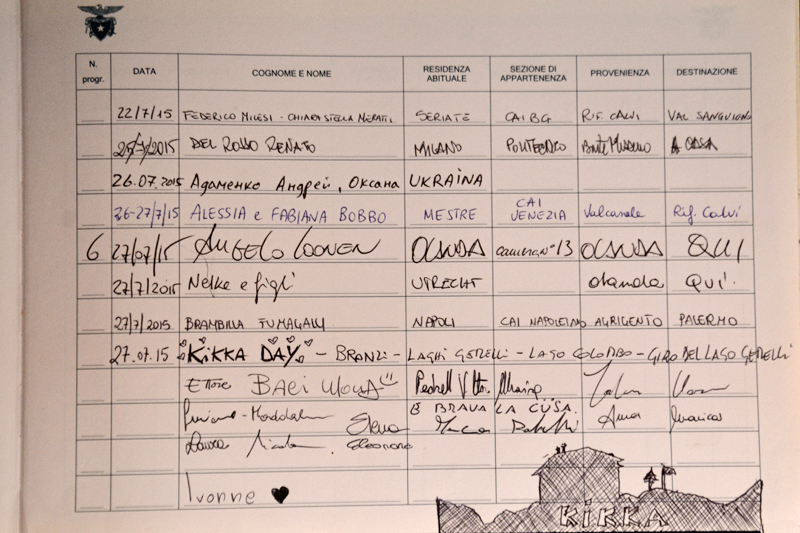 N. progr. DATA COGNOME E NOME RESIDENZA ABITUALE SEZIONE DI APPARTENENZA PROVENIENZA DESTINAZIONE
22/7/15 FEDERICO MILESI - CHIARASTELLA MERATI SERIATE CAI BG RIF. CALVI VAL SANGUIGNO
25/7/2015 DEL ROSSO RENATO MILANO A CASA
26.07.2015 Адаменко Андрей, Оксана UKRAINA
26-27/7/15 ALESSIA e FABIANA BOBBO MESTRE CAI VENEZIA Valcanale Rif. Calvi
6 27/07/15 ANGELO OLANDA camera n° 13 OLANDA QUI
27/7/2015 Nelke e figli UTRECHT olanda QUI.
27/7/2015 BRAMBILLA FUMAGALLI NAPOLI CAI NAPOLETANO AGRIGENTO PALERMO
27.07.15 KIKKA DAY - BRANZI - LAGHI GEMELLI - LAGO COLOMBO - GIRO DEL LAGO GEMELLI
Ettore
È BRAVA LA
Elena Anna
Laura Eleonora
Ivonne ♥
KIKKA